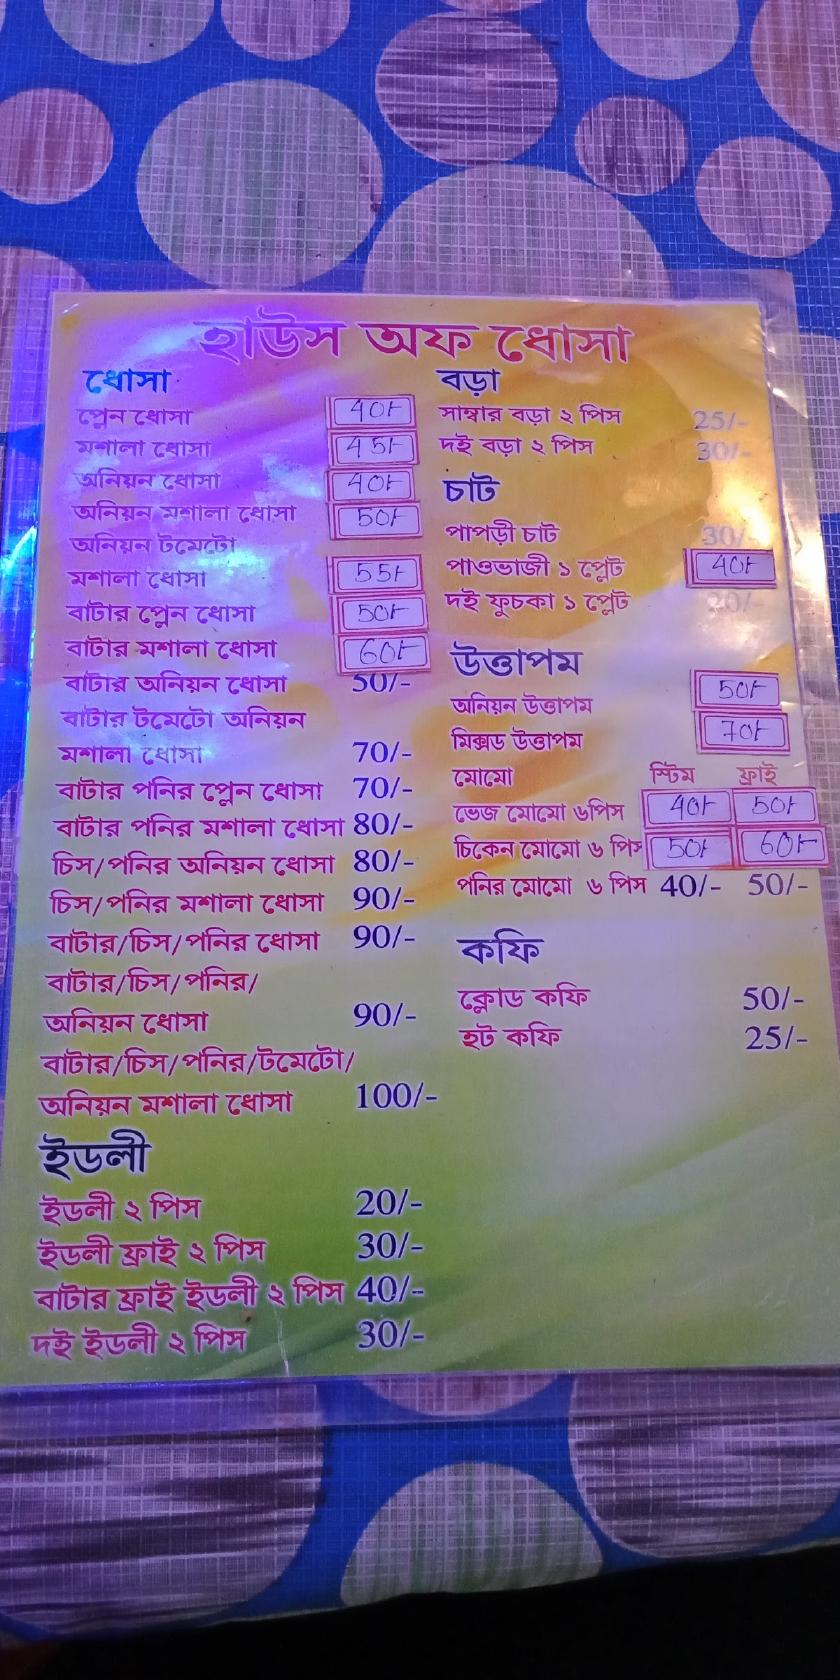 হাউস অফ ধোসা
ধোসা
প্লেন ধোসা 40/-
মশালা ধোসা 45/-
অনিয়ন ধোসা 40/-
অনিয়ন মশালা ধোসা 50/-
অনিয়ন টমেটো
মশালা ধোসা 55/-
বাটার প্লেন ধোসা 50/-
বাটার মশালা ধোসা 60/-
বাটার অনিয়ন ধোসা 50/-
বাটার টমেটো অনিয়ন
মশালা ধোসা 70/-
বাটার পনির প্লেন ধোসা 70/-
বাটার পনির মশালা ধোসা 80/-
চিস/পনির অনিয়ন ধোসা 80/-
চিস/পনির মশালা ধোসা 90/-
বাটার/চিস/পনির ধোসা 90/-
বাটার/চিস/পনির/
অনিয়ন ধোসা 90/-
বাটার/চিস/পনির/টমেটো/
অনিয়ন মশালা ধোসা 100/-
ইডলী
ইডলী ২ পিস 20/-
ইডলী ফ্রাই ২ পিস 30/-
বাটার ফ্রাই ইডলী ২ পিস 40/-
দই ইডলী ২ পিস 30/-
বড়া
সাম্বার বড়া ২ পিস 25/-
দই বড়া ২ পিস 30/-
চাট
পাপড়ী চাট 30/-
পাওভাজী ১ প্লেট 40/-
দই ফুচকা ১ প্লেট 20/-
উত্তাপম
অনিয়ন উত্তাপম 50/-
মিক্সড উত্তাপম 70/-
মোমো স্টিম ফ্রাই
ভেজ মোমো ৬পিস 40/- 50/-
চিকেন মোমো ৬ পিস 50/- 60/-
পনির মোমো ৬ পিস 40/- 50/-
কফি
ক্লোড কফি 50/-
হট কফি 25/-